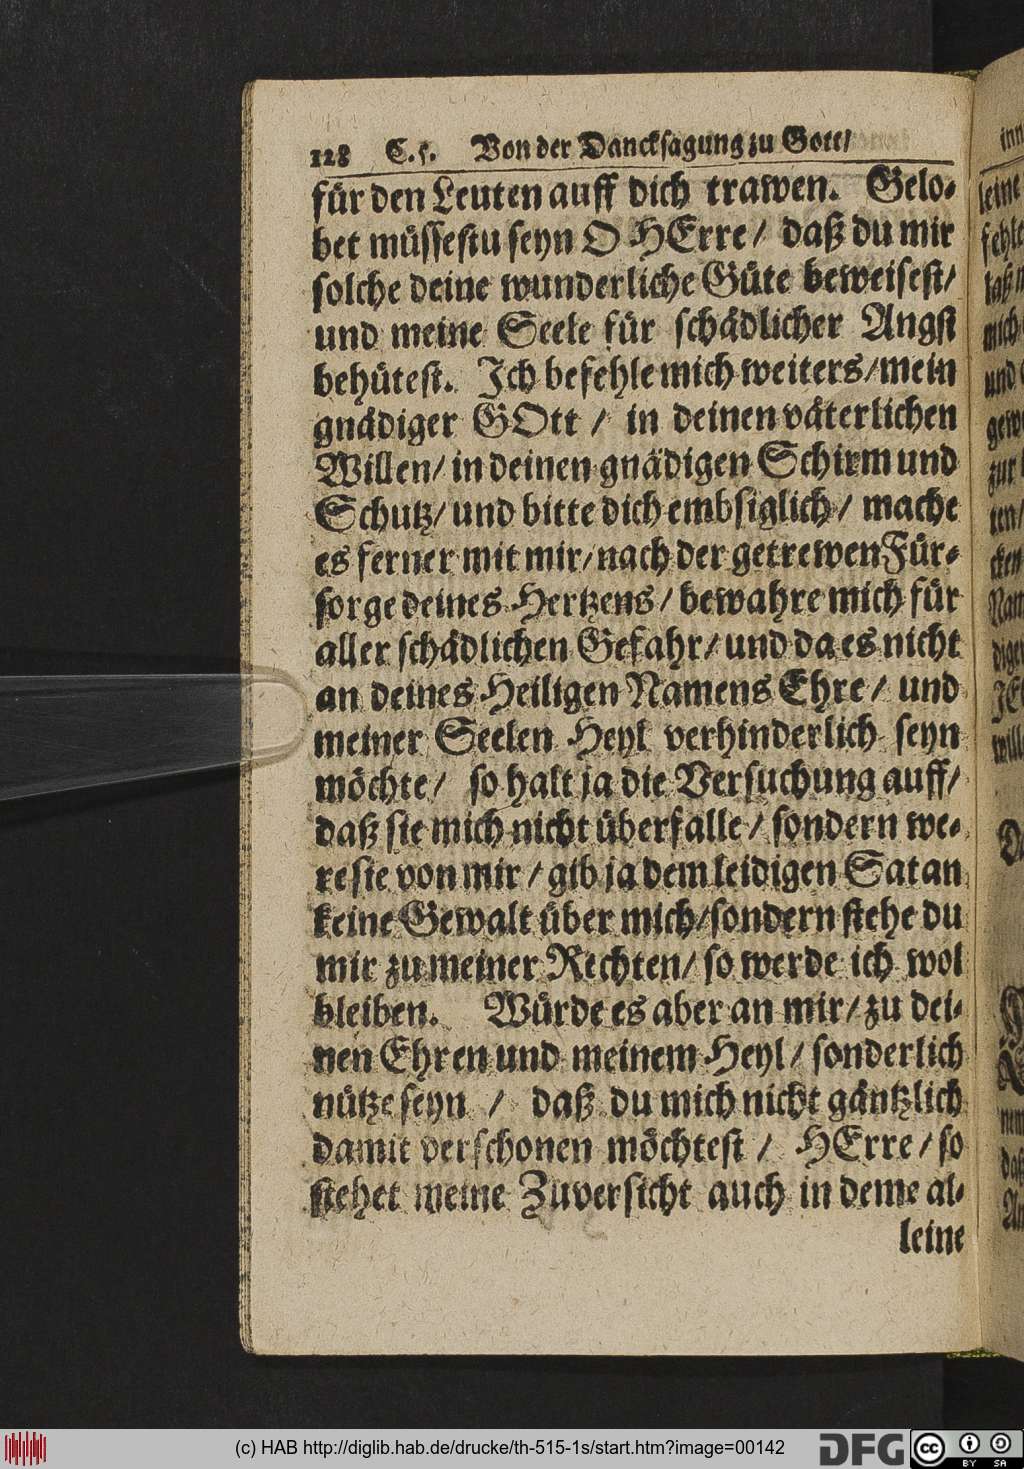 128 C. 5. Von der Dancksagung zu Gott/
für den Leuten auff dich trawen. Gelo-
bet müssestu seyn O HErre/ daß du mir
solche deine wunderliche Güte beweisest/
und meine Seele für schädlicher Angst
behütest. Ich befehle mich weiters/ mein
gnädiger GOtt / in deinen väterlichen
Willen/ in deinen gnädigen Schirm und
Schutz/ und bitte dich embsiglich/ mache
es ferner mit mir/ nach der getrewen Für-
sorge deines Hertzens/ bewahre mich für
aller schädlichen Gefahr/ und da es nicht
an deines Heiligen Namens Ehre/ und
meiner Seelen Heyl verhinderlich seyn
möchte/ so halt ja die Versuchung auff/
daß sie mich nicht überfalle/ sondern we-
re sie von mir / gib ja dem leidigen Satan
keine Gewalt über mich/ sondern stehe du
mir zu meiner Rechten/ so werde ich wol
bleiben. Würde es aber an mir/ zu dei-
nen Ehren und meinem Heyl/ sonderlich
nütze seyn / daß du mich nicht gäntzlich
damit verschonen möchtest / HErre/ so
stehet meine Zuversicht auch in deme al-
leine
(c) HAB http://diglib.hab.de/drucke/th-515-1s/start.htm?image=00142
DFG
cc
BY SA